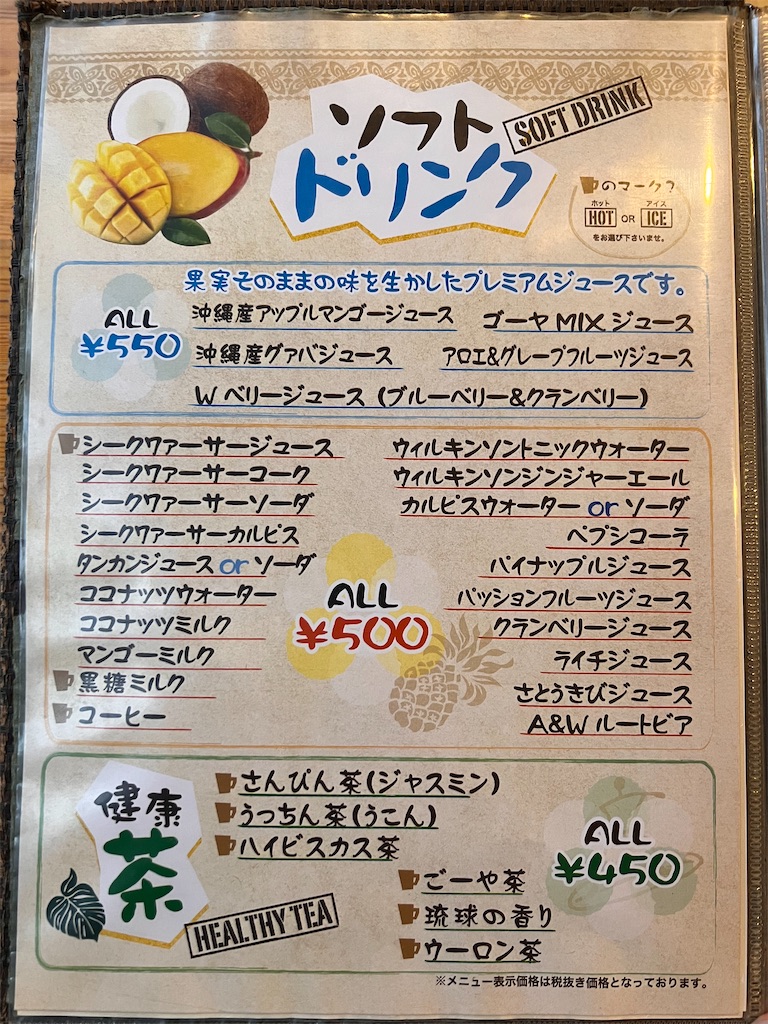 ソフト
ドリンク
SOFT DRINK
のマーク?
ホット アイス
HOT OR ICE
をお選び下さいませ。
果実そのままの味を生かしたプレミアムジュースです。
ALL
¥550
沖縄産アップルマンゴージュース
ゴーヤMIXジュース
沖縄産グァバジュース
アロエ&グレープフルーツジュース
Wベリージュース(ブルーベリー&クランベリー)
シークワァーサージュース
シークワァーサーコーク
シークワァーサーソーダ
シークワァーサーカルピス
タンカンジュース or ソーダ
ココナッツウォーター
ココナッツミルク
マンゴーミルク
黒糖ミルク
コーヒー
ALL
¥500
ウィルキンソントニックウォーター
ウィルキンソンジンジャーエール
カルピスウォーター or ソーダ
ペプシコーラ
パイナップルジュース
パッションフルーツジュース
クランベリージュース
ライチジュース
さとうきびジュース
A&Wルートビア
健康
茶
HEALTHY TEA
さんぴん茶(ジャスミン)
うっちん茶(うこん)
ハイビスカス茶
ごーや茶
琉球の香り
ウーロン茶
ALL
¥450
※メニュー表示価格は税抜き価格となっております。